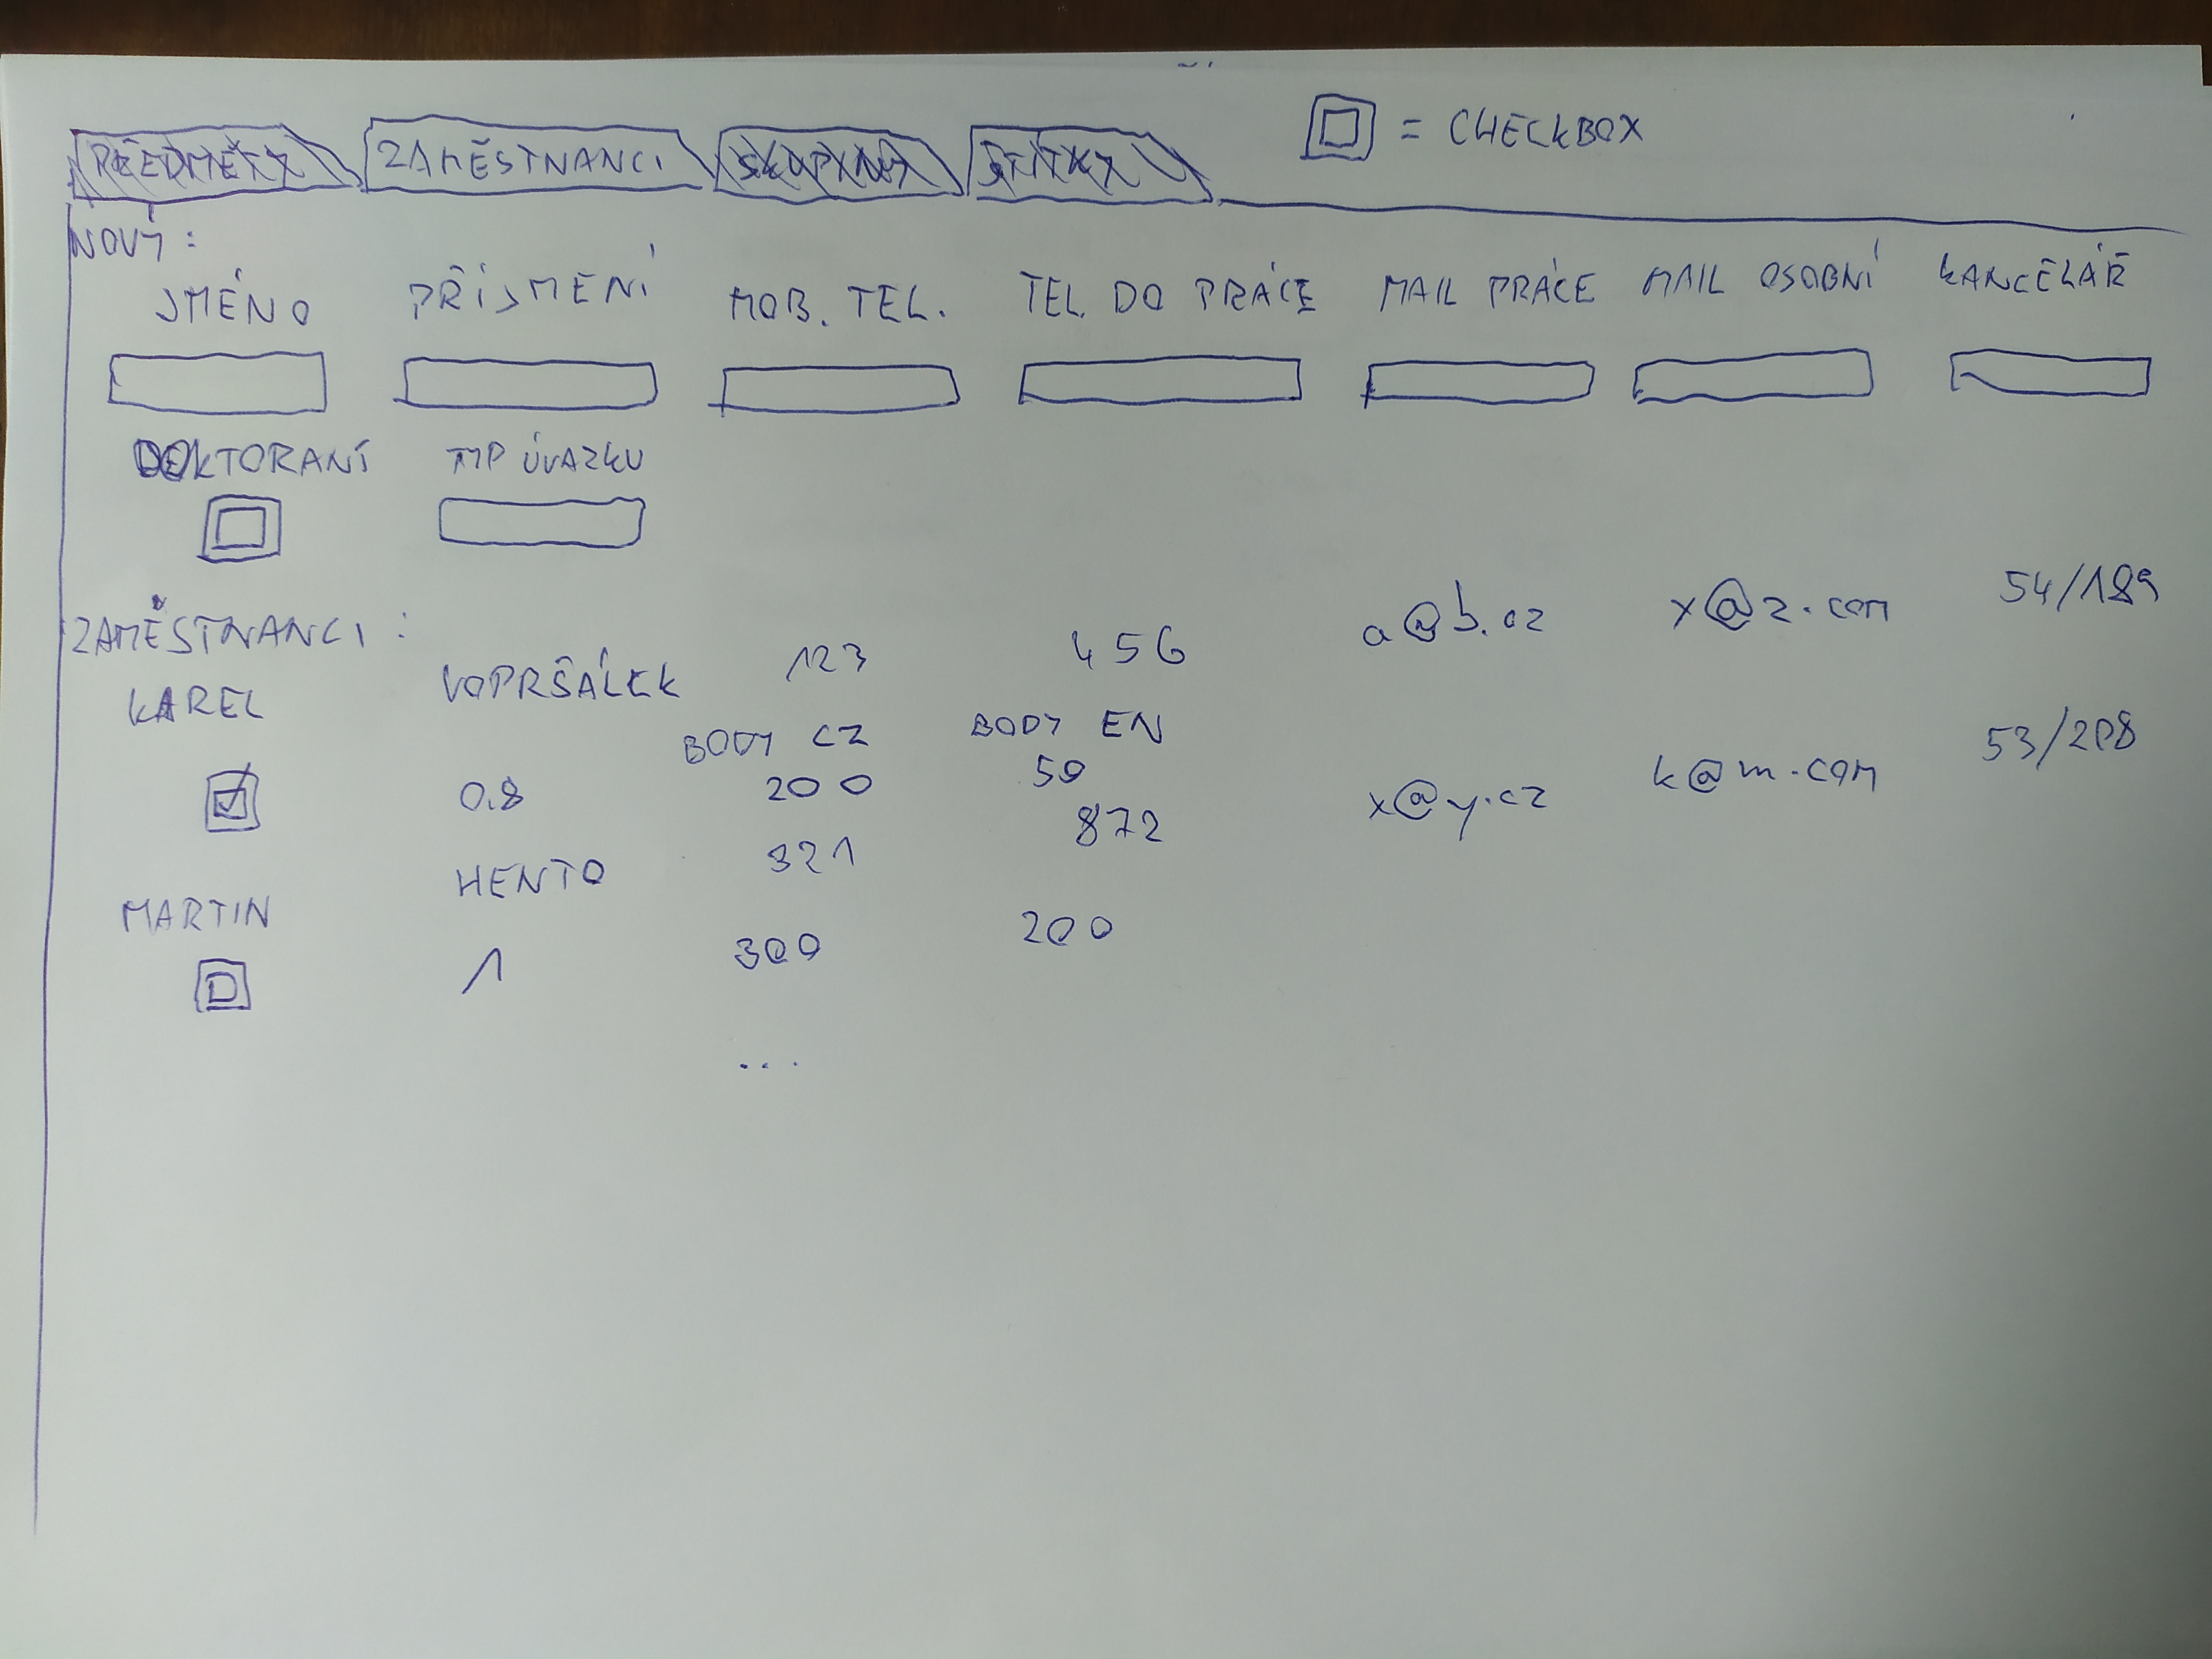 PŘEDMĚTY ZAMĚSTNANCI SKUPINY ŠTÍTKY = CHECKBOX
NOVÝ :
JMÉNO PŘÍJMENÍ MOB. TEL. TEL. DO PRÁCE MAIL PRÁCE MAIL OSOBNÍ KANCELÁŘ
DOKTORANT TYP ÚVAZKU
ZAMĚSTNANCI :
KAREL VOPRŠÁLEK 123 456 a@b.cz x@z.com 54/189
BODY CZ BODY EN
0.8 200 50
MARTIN HENTO 321 872 x@y.cz k@m.com 53/208
1 300 200
...